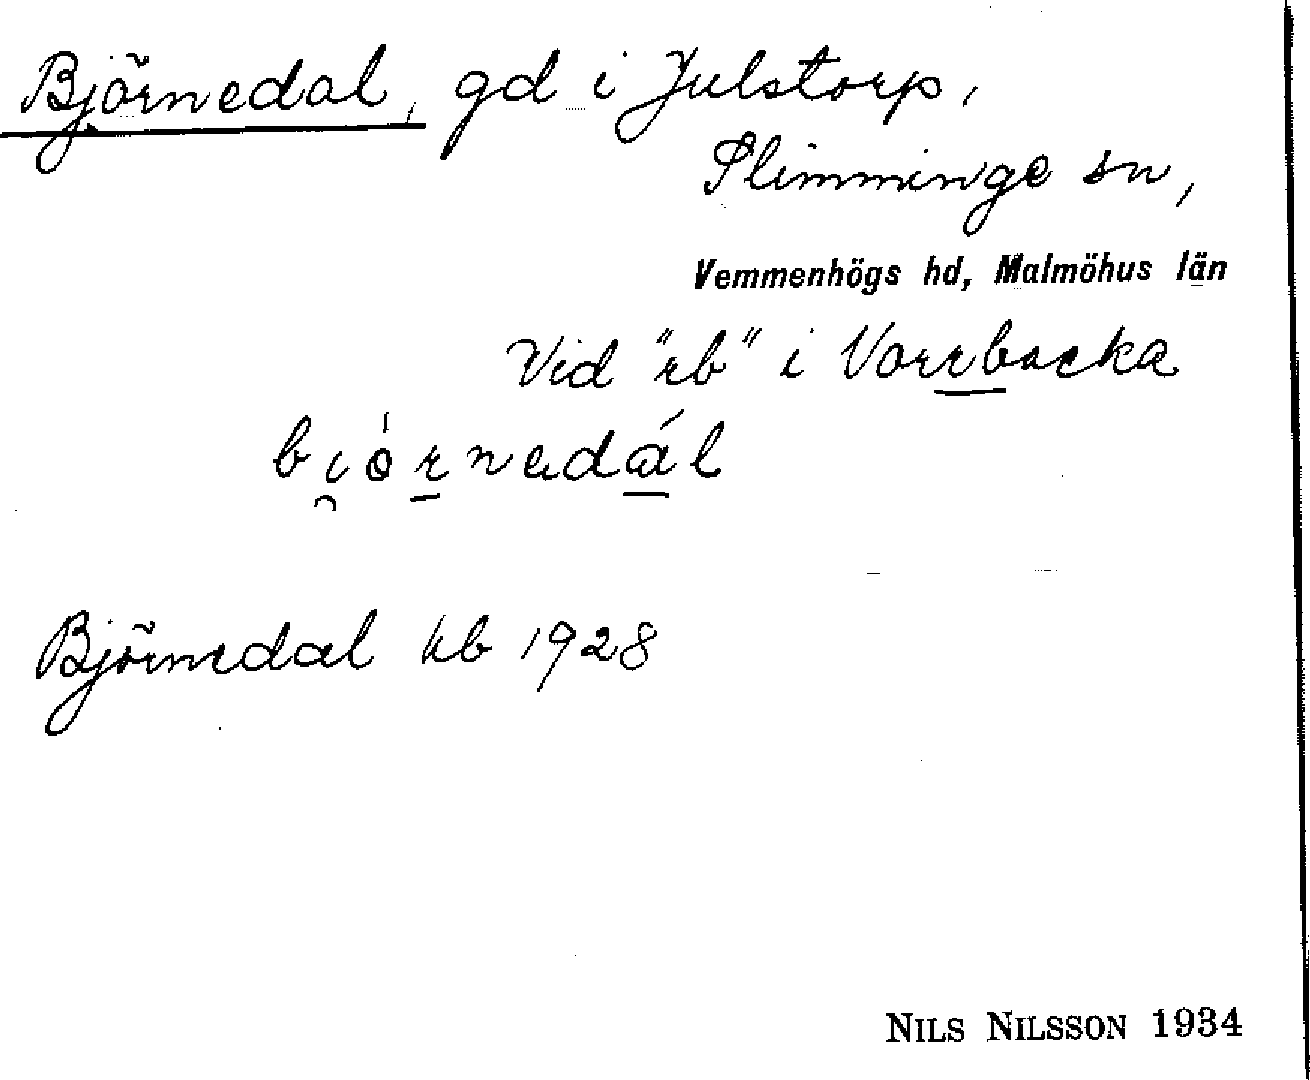 Björnedal, gd i Julstorp,
Slimminge sn,
Vemmenhögs hd, Malmöhus län
Vid "rb" i Vorrbacka
Björnedal kb 1928
NILS NILSSON 1934